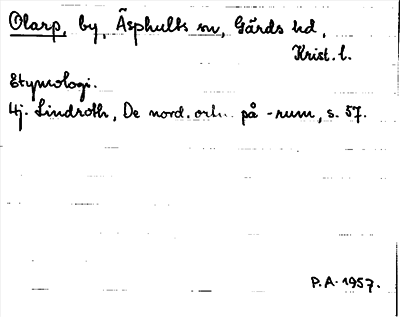 Olarp, by, Äsphults sn, Gärds hd,
Krist. l.
Etymologi.
Hj. Lindroth, De nord. ortn. på -rum, s. 57.
P.A. 1957.